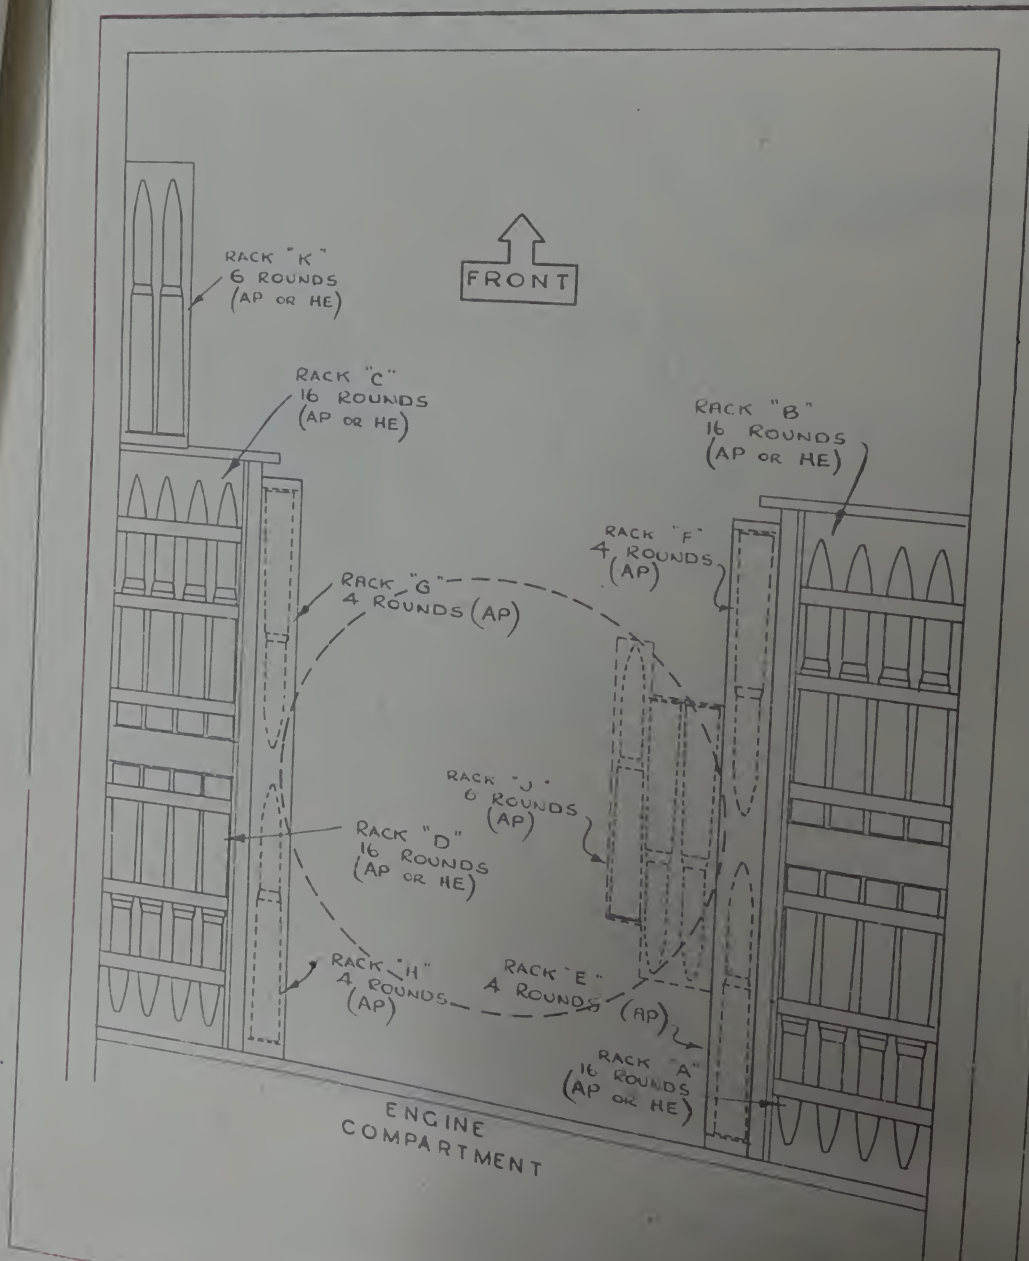 RACK "K"
6 ROUNDS
(AP OR HE)
FRONT
RACK "C"
16 ROUNDS
(AP OR HE)
RACK "B"
16 ROUNDS
(AP OR HE)
RACK "F"
4 ROUNDS
(AP)
RACK "G"
4 ROUNDS (AP)
RACK "J"
6 ROUNDS
(AP)
RACK "D"
16 ROUNDS
(AP OR HE)
RACK "H"
4 ROUNDS
(AP)
RACK "E"
4 ROUNDS
(AP)
RACK "A"
16 ROUNDS
(AP OR HE)
ENGINE
COMPARTMENT